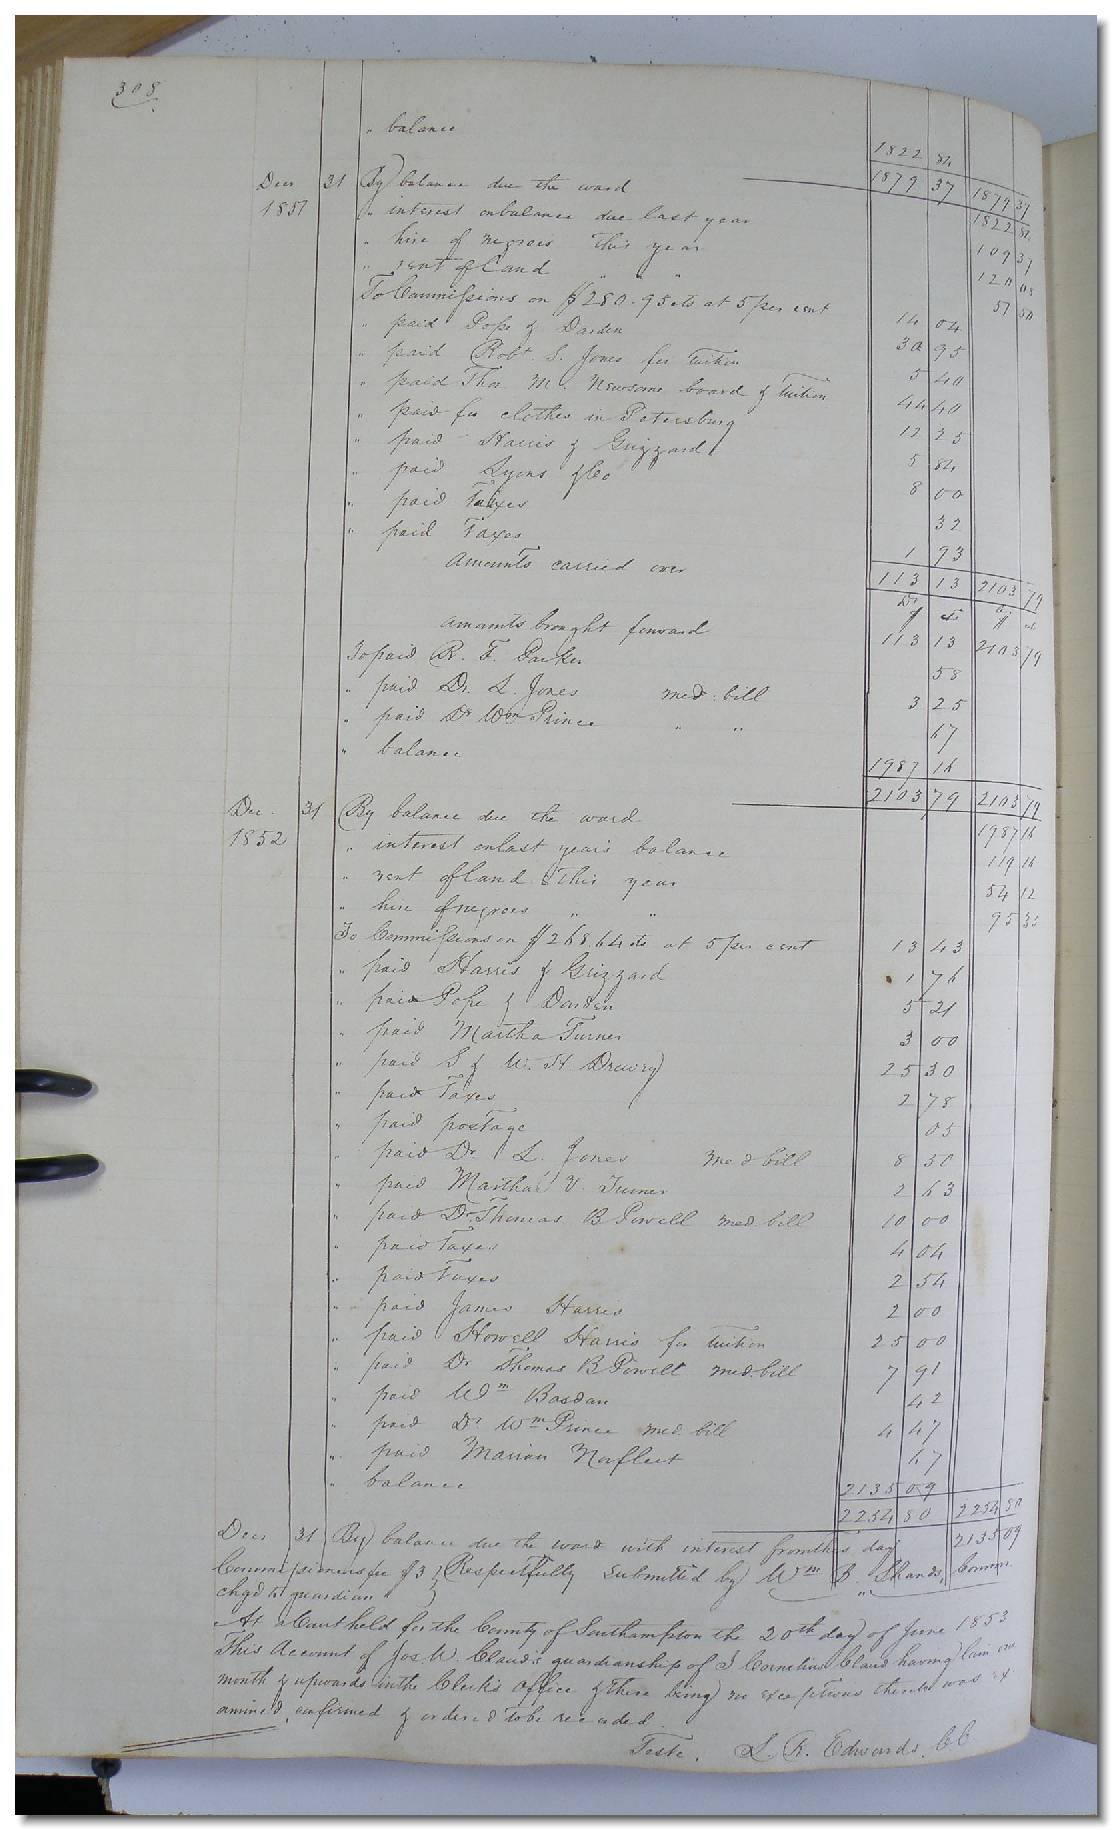 308
" balance 1822 84
1879 37 1879 37
Decr 31 By balance due the ward 1822 84
1851 " interest on balance due last year 109 37
" hire of negroes this year 120 05
" rent of Land " " " 51 50
To Commissions on $280.95 cts at 5 per cent 14 04
" paid Pope & Darden 30 95
" paid Robt. S. Jones for tuition 5 40
" paid Tho. M. Newsome board & tuition 44 40
" paid for clothes in Petersburg 12 25
" paid Harris & Grizzard 5 84
" paid Lyons & Co 8 00
" paid Taxes 32
" paid Taxes 1 93
Amounts carried over 113 13 2103 79
Dr $ cts Cr $ cts
amounts brought forward 113 13 2103 79
To paid R. F. Parker 58
" paid Dr. L. Jones med. bill 3 25
" paid Dr Wm Prince " " 67
" balance 1987 16
2103 79 2103 79
Dec. 31 By balance due the ward 1987 16
1852 " interest on last years balance 119 16
" rent of Land this year 54 12
" hire of negroes " "
To Commissions on $268.64 cts at 5 per cent 13 43
" paid Harris & Grizzard 1 76
" paid Pope & Darden 5 21
" paid Martha Turner 3 00
" paid S & W. H Drewry 25 30
" paid Taxes 2 78
" paid postage 05
" paid Dr. L. Jones med bill 8 50
" paid Martha V. Turner 2 63
" paid Dr. Thomas B Powell med. bill 10 00
" paid Taxes 4 04
" paid Taxes 2 54
" paid James Harris 2 00
" paid Howell Harris for tuition 25 00
" paid Dr Thomas B Powell med. bill 7 91
" paid Wm Basdan 42
" paid Dr Wm Prince med. bill 4 47
" paid Marian Norfleet 67
" balance 2135 09
2254 80 2254 80
Decr 31 By balance due the ward with interest from this day 2135 09
Commissioners fee $3 } Respectfully submitted by Wm B. Shands, Commr.
chgd to guardian }
At a Court held for the County of Southampton the 20th day of June 1853
This Account of Jos W. Claud's guardianship of J Cornelius Claud having lain one
month & upwards in the Clerk's office & there being no exceptions thereto was ex
amined, confirmed & ordered to be recorded.
Teste, L. R. Edwards. CC